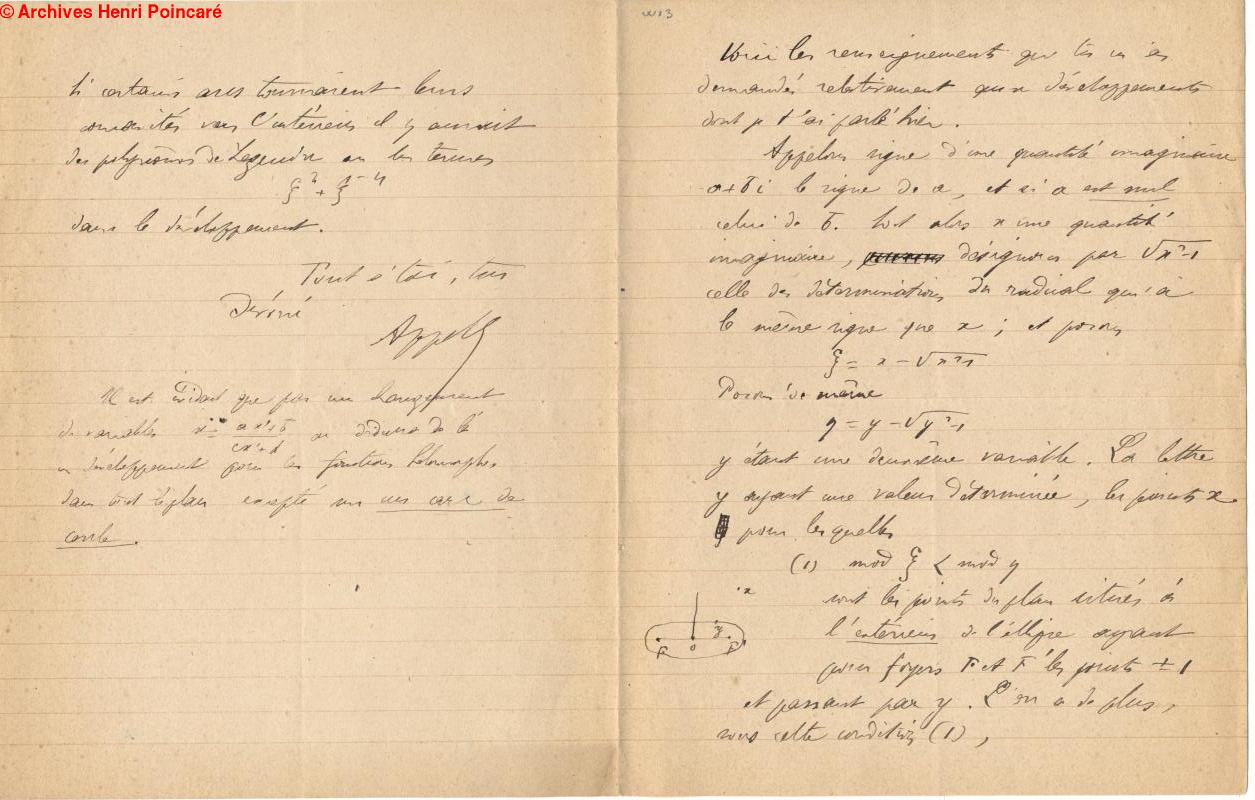 © Archives Henri Poincaré
Si certains arcs tournaient leurs
concavités vers l'intérieur il y aurait
des polynômes de Legendre ou les termes
ξⁿ + ξ⁻ⁿ
dans le développement.
Tout à toi, ton
dévoué
Appell
Il est évident que par un changement
de variables x = (ax'+b)/(cx'+d) on déduira de là
un développement pour les fonctions holomorphes
dans tout le plan excepté sur un arc de
cercle.
Voici les renseignements que tu m'as
demandés relativement aux développements
dont je t'ai parlé hier.
Appelons signe d'une quantité imaginaire
a + bi le signe de a, et si a est nul
celui de b. Soit alors x une quantité
imaginaire, désignons par √x²-1
celle des déterminations du radical qui a
le même signe que x ; et posons
ξ = x - √x²-1
Posons de même
η = y - √y²-1
y étant une deuxième variable. La lettre
y ayant une valeur déterminée, les points x
pour lesquelles
(1) mod ξ < mod η
sont les points du plan situés à
l'extérieur de l'ellipse ayant
pour foyers F et F' les points ± 1
et passant par y. L'on a de plus,
sous cette condition (1),
x
y
F
o
F'